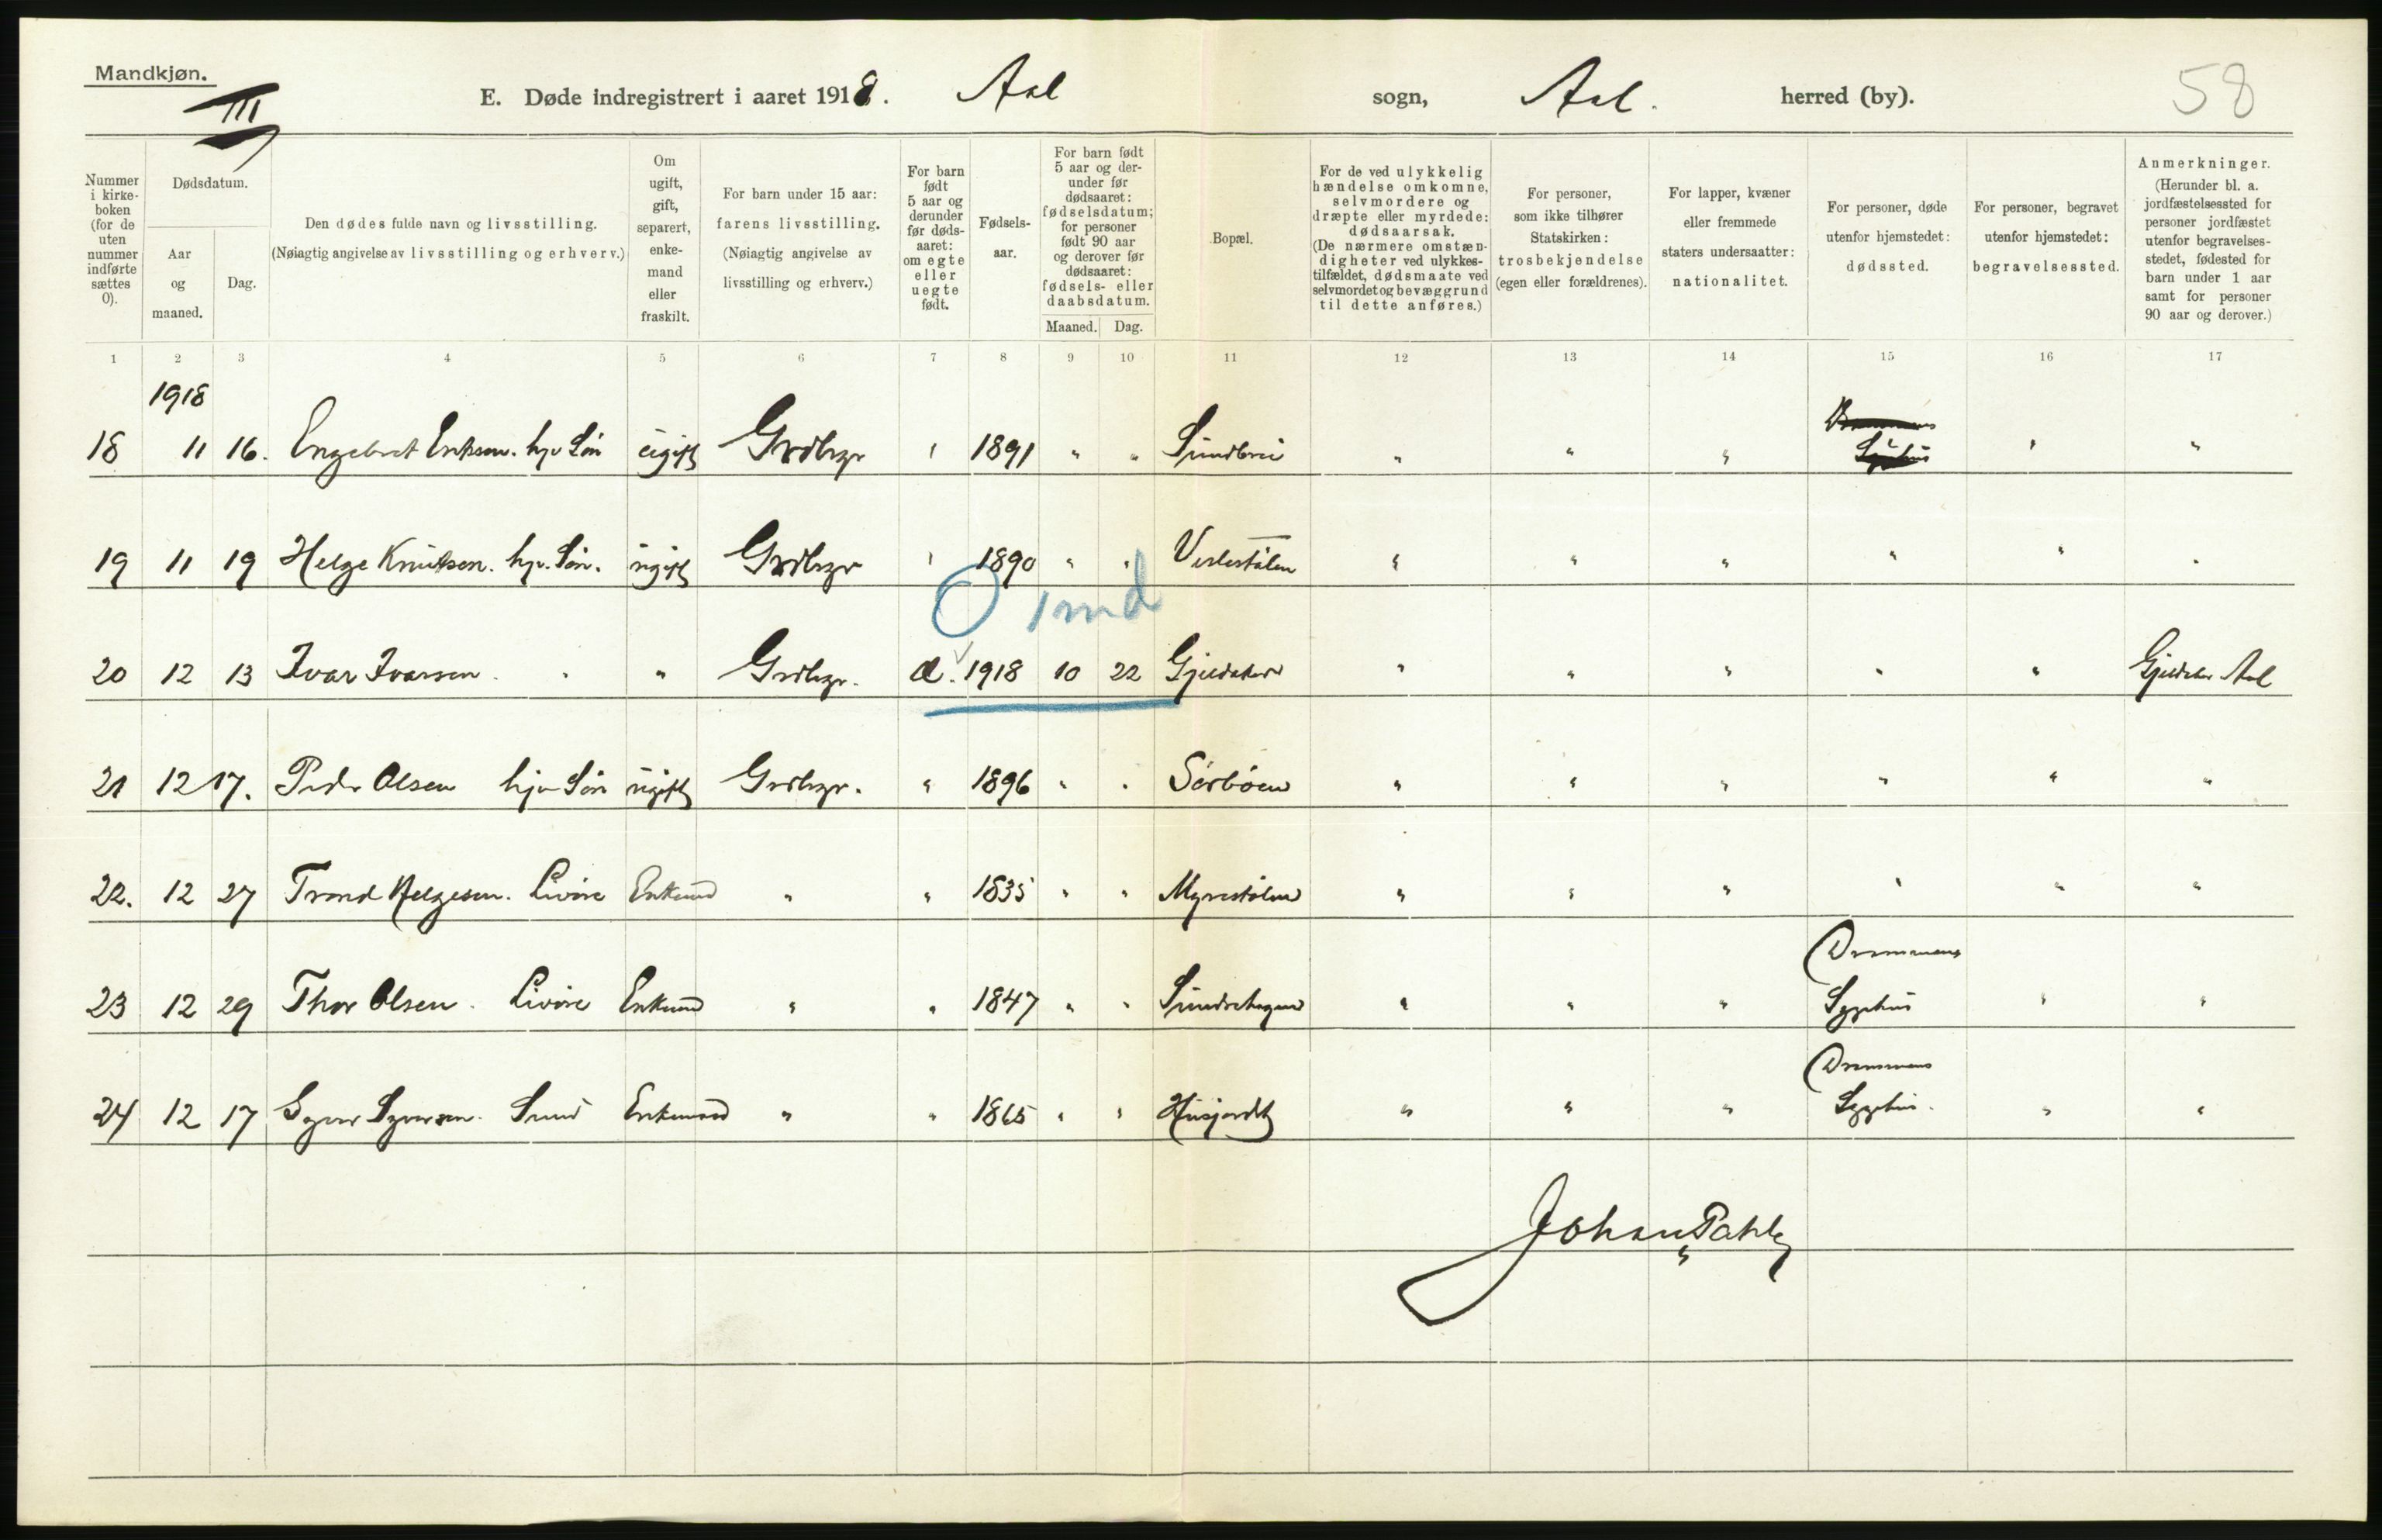 Mandkjøn.
III
E. Døde indregistrert i aaret 1918. Aal sogn, Aal. herred (by).
58
Nummer i kirke-boken (for de uten nummer indførte sættes 0).
Dødsdatum.
Aar og maaned.
Dag.
Den dødes fulde navn og livsstilling.
(Nøiagtig angivelse av livsstilling og erhverv.)
Om ugift, gift, separert, enke-mand eller fraskilt.
For barn under 15 aar: farens livsstilling.
(Nøiagtig angivelse av livsstilling og erhverv.)
For barn født 5 aar og derunder før døds-aaret: om egte eller uegte født.
Fødsels-aar.
For barn født 5 aar og der-under før dødsaaret: fødselsdatum; for personer født 90 aar og derover før dødsaaret: fødsels- eller daabsdatum.
Maaned. Dag.
Bopæl.
For de ved ulykkelig hændelse omkomne, selvmordere og dræpte eller myrdede: dødsaarsak.
(De nærmere omstæn-digheter ved ulykkes-tilfældet, dødsmaate ved selvmordet og bevæggrund til dette anføres.)
For personer, som ikke tilhører Statskirken: trosbekjendelse (egen eller forældrenes).
For lapper, kvæner eller fremmede staters undersaatter: nationalitet.
For personer, døde utenfor hjemstedet: dødssted.
For personer, begravet utenfor hjemstedet: begravelsessted.
Anmerkninger.
(Herunder bl. a. jordfæstelsessted for personer jordfæstet utenfor begravelses-stedet, fødested for barn under 1 aar samt for personer 90 aar og derover.)
1 2 3 4 5 6 7 8 9 10 11 12 13 14 15 16 17
1918
18 11 16. Engebret Eriksen. hjv Søn ugift Grdbrgr " 1891 " " Sundbrei " " " " "
19 11 19 Helge Knutsen. hjv. Søn. ugift Grdbrgr " 1890 " " Veslestölen " " " " " "
O 1 md
20 12 13 Ivar Ivarsen. " " Grdbrgr. æ. 1918 10 22 Gjeldaker " " " " " Gjeldaker Aal
21 12 17. Peder Olsen hjv Søn ugift Grdbrgr. " 1896 " " Sörböen " " " " " "
22. 12 27 Trond Helgesen. Livöre Enkemd " " 1835 " " Myrestölen " " " " " "
23 12 29 Thor Olsen. Livöre Enkemd " " 1847 " " Sundrehagen " " " Drammens Sygehus " "
24 12 17 Syver Syversen. Smed Enkemand " " 1865 " " Husjordet " " " Drammens Sygehus. " "
Johan Pahle